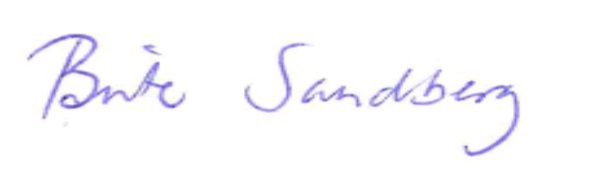 Brite Sandberg